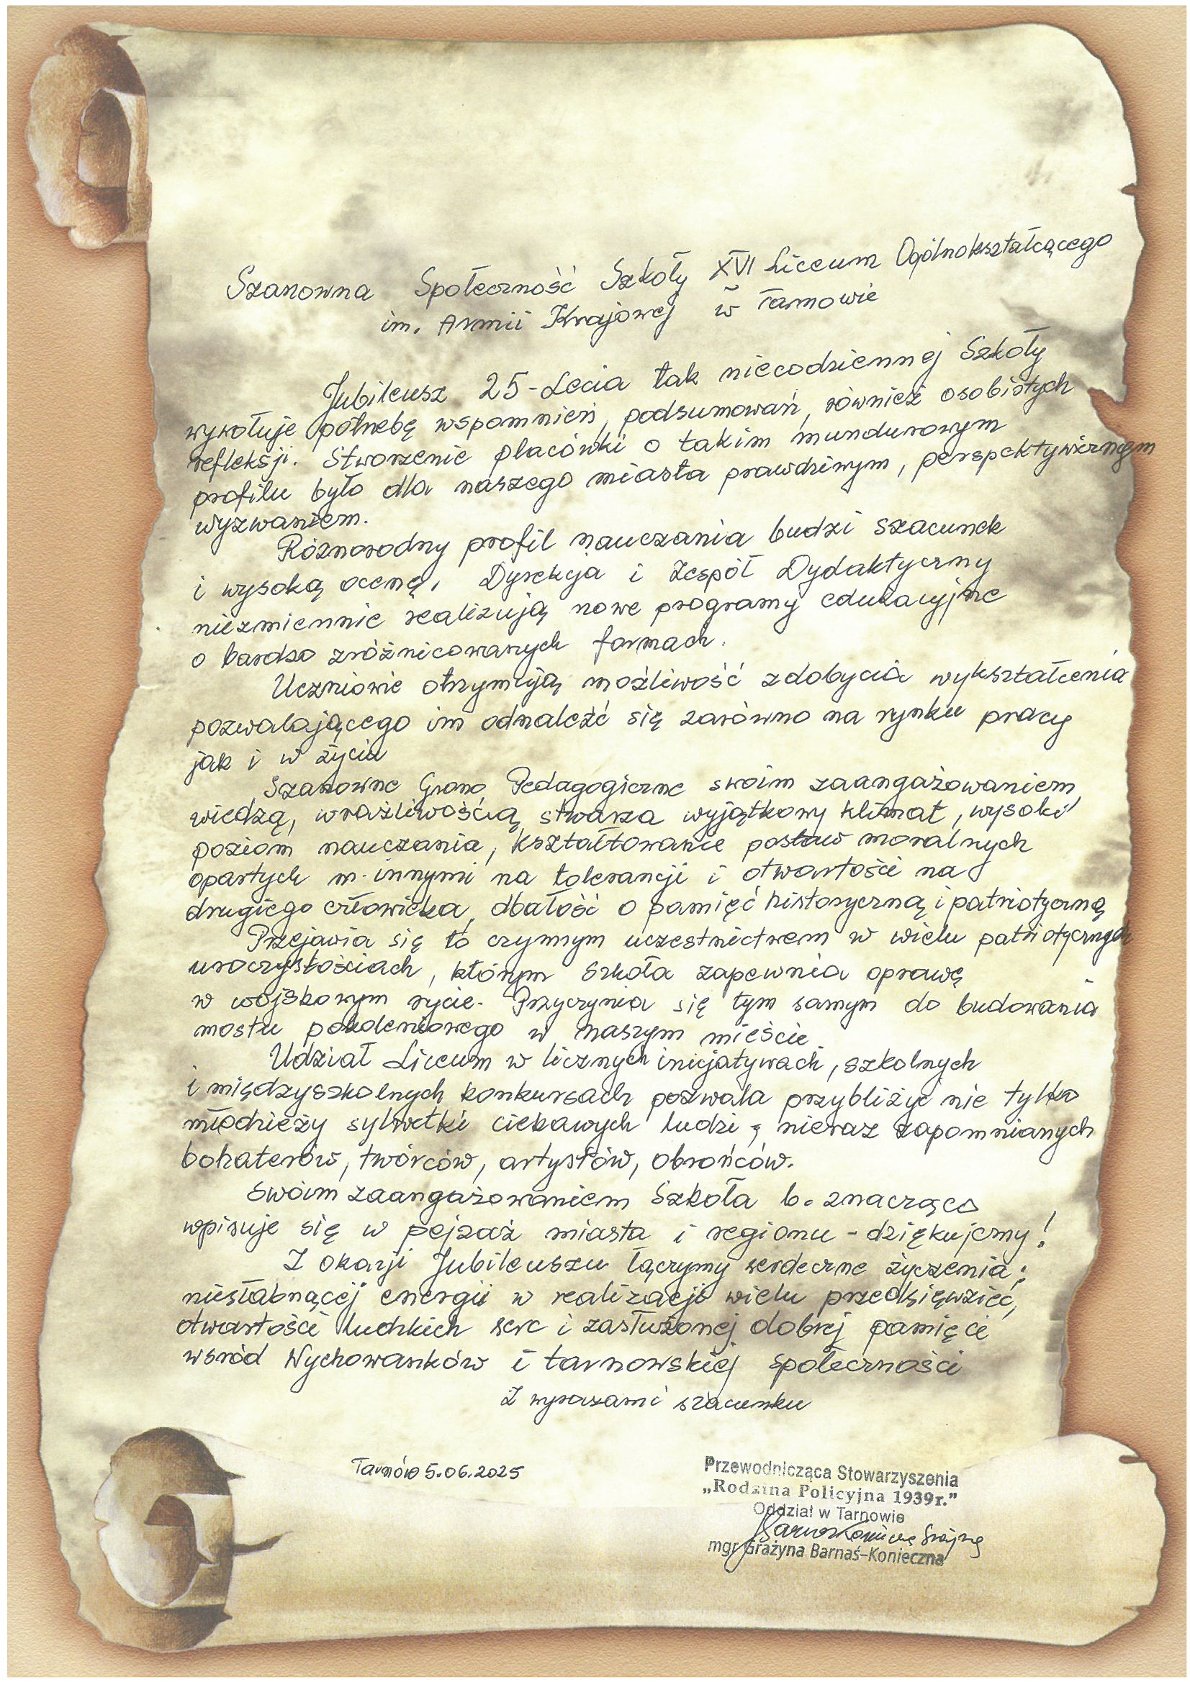 Szanowna Społeczność Szkoły XVI Liceum Ogólnokształcącego
im. Armii Krajowej w Tarnowie
Jubileusz 25-Lecia tak niecodziennej Szkoły
wywołuje potrzebę wspomnień, podsumowań, również osobistych
refleksji. Stworzenie placówki o takim mundurowym
profilu było dla naszego miasta prawdziwym, perspektywicznym
wyzwaniem.
Różnorodny profil nauczania budzi szacunek
i wysoką ocenę. Dyrekcja i Zespół Dydaktyczny
niezmiennie realizują nowe programy edukacyjne
o bardzo zróżnicowanych formach.
Uczniowie otrzymują możliwość zdobycia wykształcenia
pozwalającego im odnaleźć się zarówno na rynku pracy
jak i w życiu
Szanowne Grono Pedagogiczne swoim zaangażowaniem,
wiedzą, wrażliwością stwarza wyjątkowy klimat, wysoki
poziom nauczania, kształtowanie postaw moralnych
opartych m. innymi na tolerancji i otwartości na
drugiego człowieka, dbałość o pamięć historyczną i patriotyczną
Przejawia się to czynnym uczestnictwem w wielu patriotycznych
uroczystościach, którym Szkoła zapewnia oprawę
w wojskowym rycie. Przyczynia się tym samym do budowania
mostu pokoleniowego w naszym mieście
Udział Liceum w licznych inicjatywach, szkolnych
i międzyszkolnych konkursach pozwala przybliżyć nie tylko
młodzieży sylwetki ciekawych ludzi, nieraz zapomnianych
bohaterów, twórców, artystów, obrońców.
Swoim zaangażowaniem Szkoła b. znacząco
wpisuje się w pejzaż miasta i regionu - dziękujemy!
Z okazji Jubileuszu łączymy serdeczne życzenia:
niesłabnącej energii w realizacji wielu przedsięwzięć,
otwartości ludzkich serc i zasłużonej dobrej pamięci
wśród Wychowanków i tarnowskiej społeczności
Z wyrazami szacunku
Tarnów 5.06.2025
Przewodnicząca Stowarzyszenia
„Rodzina Policyjna 1939r.”
Oddział w Tarnowie
mgr Grażyna Barnaś-Konieczna